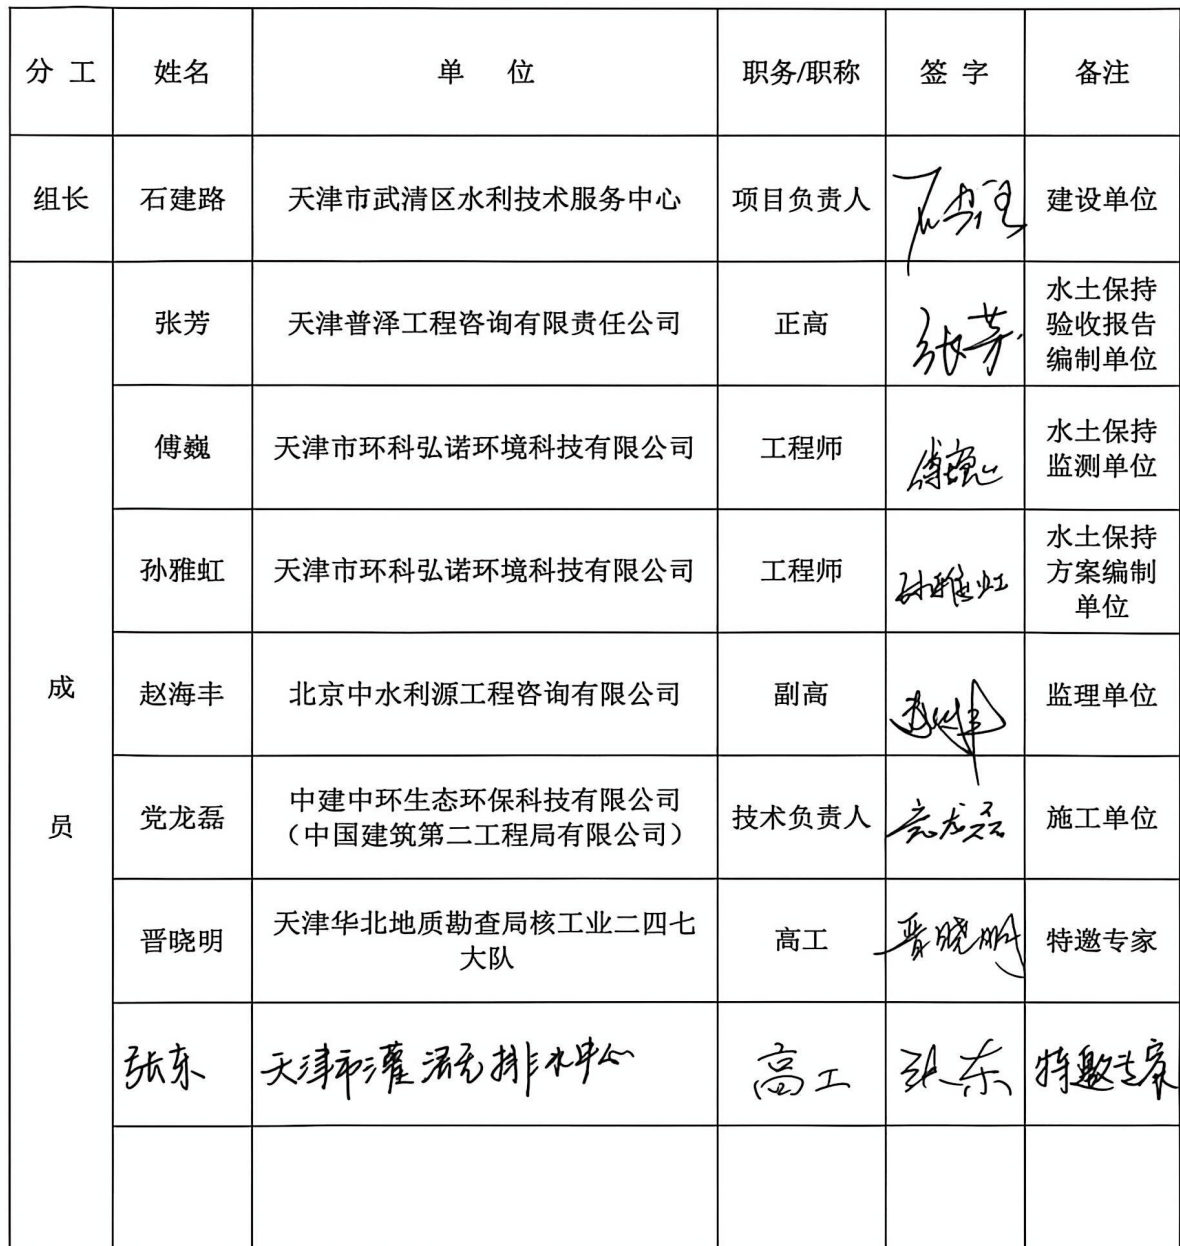 分 工 姓名 单 位 职务/职称 签 字 备注
组长 石建路 天津市武清区水利技术服务中心 项目负责人 石建路 建设单位
成
员
张芳 天津普泽工程咨询有限责任公司 正高 张芳
水土保持
验收报告
编制单位
傅巍 天津市环科弘诺环境科技有限公司 工程师 傅巍
水土保持
监测单位
孙雅虹 天津市环科弘诺环境科技有限公司 工程师 孙雅虹
水土保持
方案编制
单位
赵海丰 北京中水利源工程咨询有限公司 副高 赵海丰 监理单位
党龙磊
中建中环生态环保科技有限公司
（中国建筑第二工程局有限公司）
技术负责人 党龙磊 施工单位
晋晓明
天津华北地质勘查局核工业二四七
大队
高工 晋晓明 特邀专家
张东 天津市灌溉排水中心 高工 张东 特邀专家